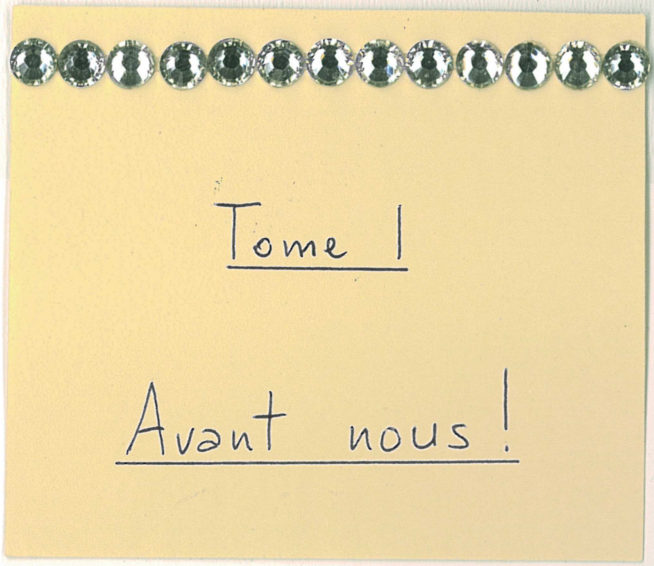 Tome 1
Avant nous!